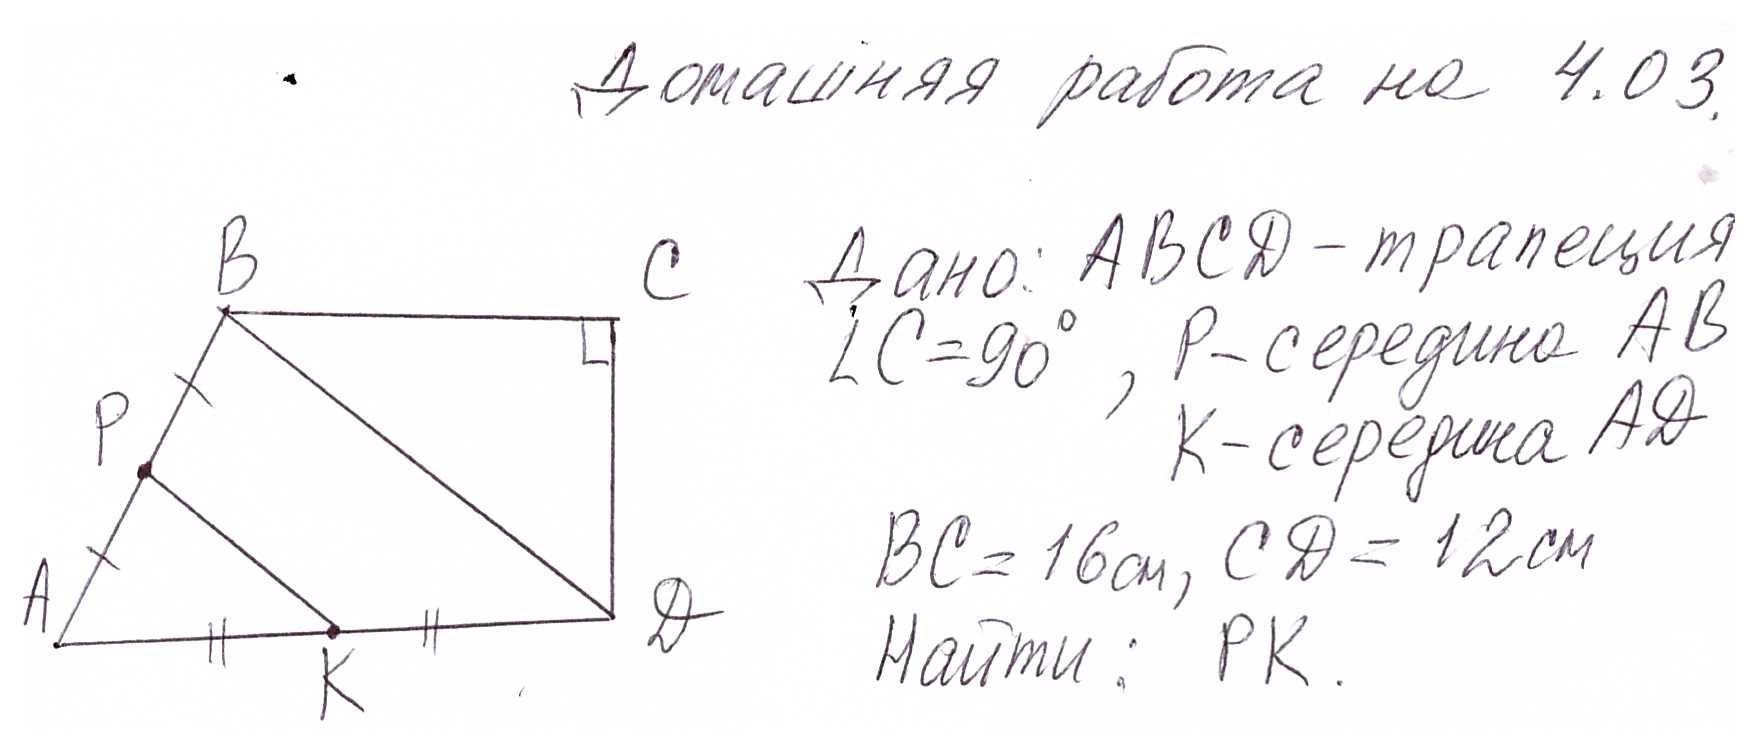 Домашняя работа на 4.03.
B
C
P
A
D
K
Дано: ABCD – трапеция
∠C=90°, P – середина AB
K – середина AD
BC=16см, CD=12см
Найти: PK.